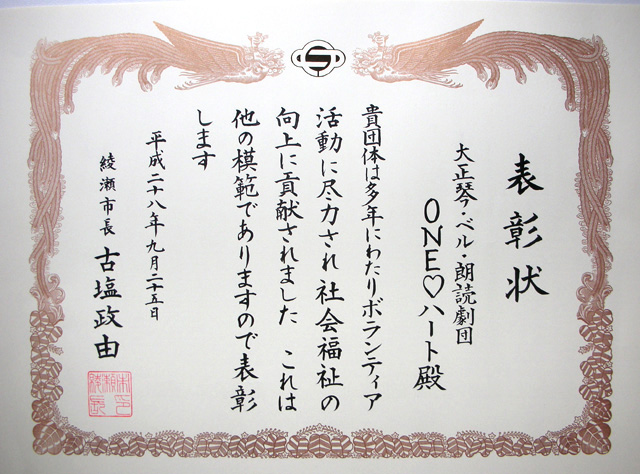 表彰状
大正琴・ベル・朗読劇団
ONE♡ハート殿
貴団体は多年にわたりボランティア
活動に尽力され社会福祉の
向上に貢献されました これは
他の模範でありますので表彰
します
平成二十八年九月二十五日
綾瀬市長 古塩政由